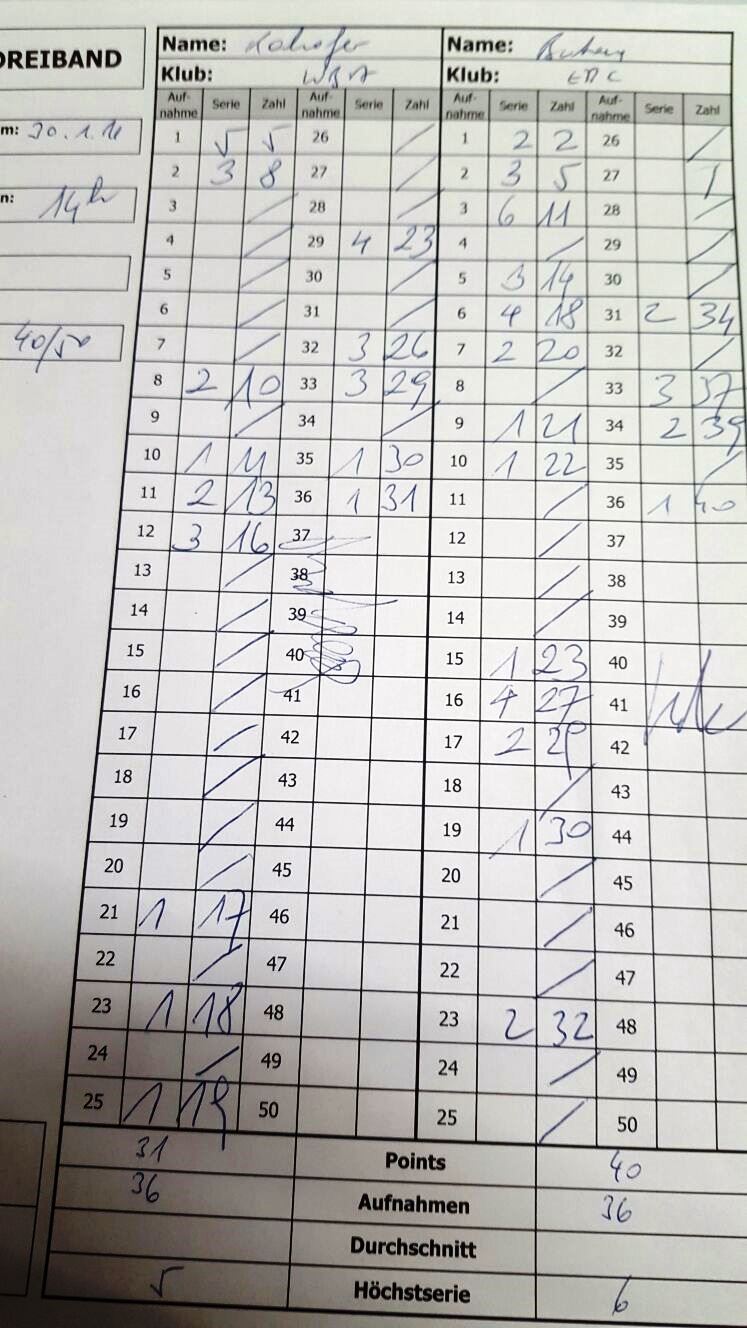 DREIBAND
m: 30.1.
n: 14h
40/50
Name: Name:
Klub: WBA Klub:
Auf-nahme Serie Zahl Auf-nahme Serie Zahl Auf-nahme Serie Zahl Auf-nahme Serie Zahl
1 5 5 26 / 1 2 2 26 /
2 3 8 27 / 2 3 5 27 /
3 / 28 / 3 6 11 28 /
4 / 29 4 23 4 / 29 /
5 / 30 / 5 3 14 30 /
6 / 31 / 6 4 18 31 2 34
7 / 32 3 26 7 2 20 32 /
8 2 10 33 3 29 8 / 33 3 37
9 / 34 / 9 1 21 34 2 39
10 1 11 35 1 30 10 1 22 35 /
11 2 13 36 1 31 11 / 36 1 40
12 3 16 37 12 / 37
13 / 38 13 / 38
14 / 39 14 / 39
15 / 40 15 1 23 40
16 / 41 16 4 27 41
17 / 42 17 2 29 42
18 / 43 18 / 43
19 / 44 19 1 30 44
20 / 45 20 / 45
21 1 17 46 21 / 46
22 / 47 22 / 47
23 1 18 48 23 2 32 48
24 / 49 24 / 49
25 1 19 50 25 / 50
31 Points 40
36 Aufnahmen 36
Durchschnitt
5 Höchstserie 6